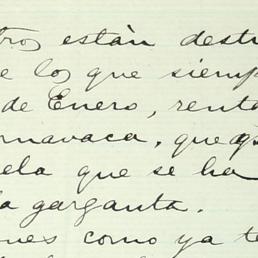 tros están dest
e los que siemp
de Enero, renta
rnavaca, que
ela que se ha
la garganta.
nes como ya te